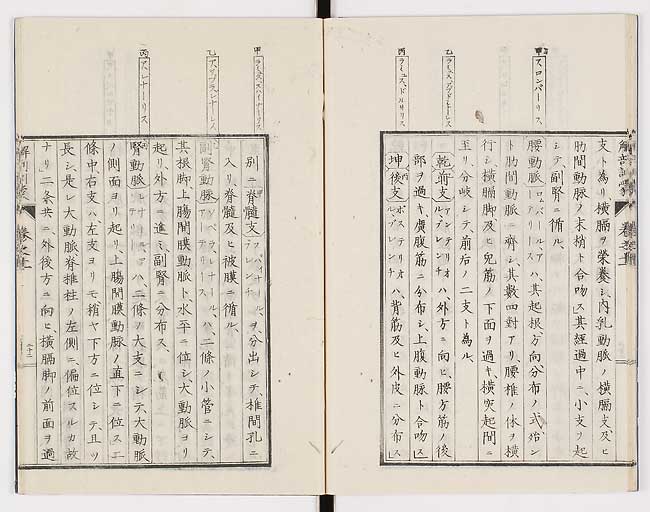 甲
スロンバーリス
乙
ラミュス、アブドミナーレス
丙
ラミュス、ドルサリス
支ト為リ横膈ヲ栄養シ内乳動脈ノ横膈支及ヒ
肋間動脈ノ末梢ト合吻ス其経過中ニ小支ヲ起
シテ副腎ニ循ル
腰動脈ハ其起根方向分布ノ式殆ン
ト肋間動脈ニ齊シ其数四対アリ腰椎ノ体ヲ横
行シ横膈脚及ヒ皃筋ノ下面ヲ過キ横突起間ニ
至リ分岐シテ前后ノ二支ト為ル
乾前支ハ外方ニ向ヒ腰方筋ノ後
部ヲ過キ廣腹筋ニ分布シ上腹動脈ト合吻ス
坤後支ハ背筋及ヒ外皮ニ分布ス
甲
ラミュス、スハイナーリス
乙
アスップラレナーレス
丙
アスレナーリス
別ニ脊髓支ヲ分出シテ椎間孔ニ
入リ脊髓及ヒ被膜ニ循ル
副腎動脈ハ二條ノ小管ニシテ
其根脚上腸間膜動脈ト水平ニ位シ大動脈ヨリ
起リ外方ニ進ミ副腎ニ分布ス
腎動脈ハ二條ノ大支ニシテ大動脈
ノ側面ヨリ起リ上腸間膜動脈ノ直下ニ位ス二
條中右支ハ左支ヨリモ稍ヤ下方ニ位シテ且ツ
長シ是レ大動脈脊椎柱ノ左側ニ偏位スルカ故
ナリ二条共ニ外後方ニ向ヒ横膈脚ノ前面ヲ過